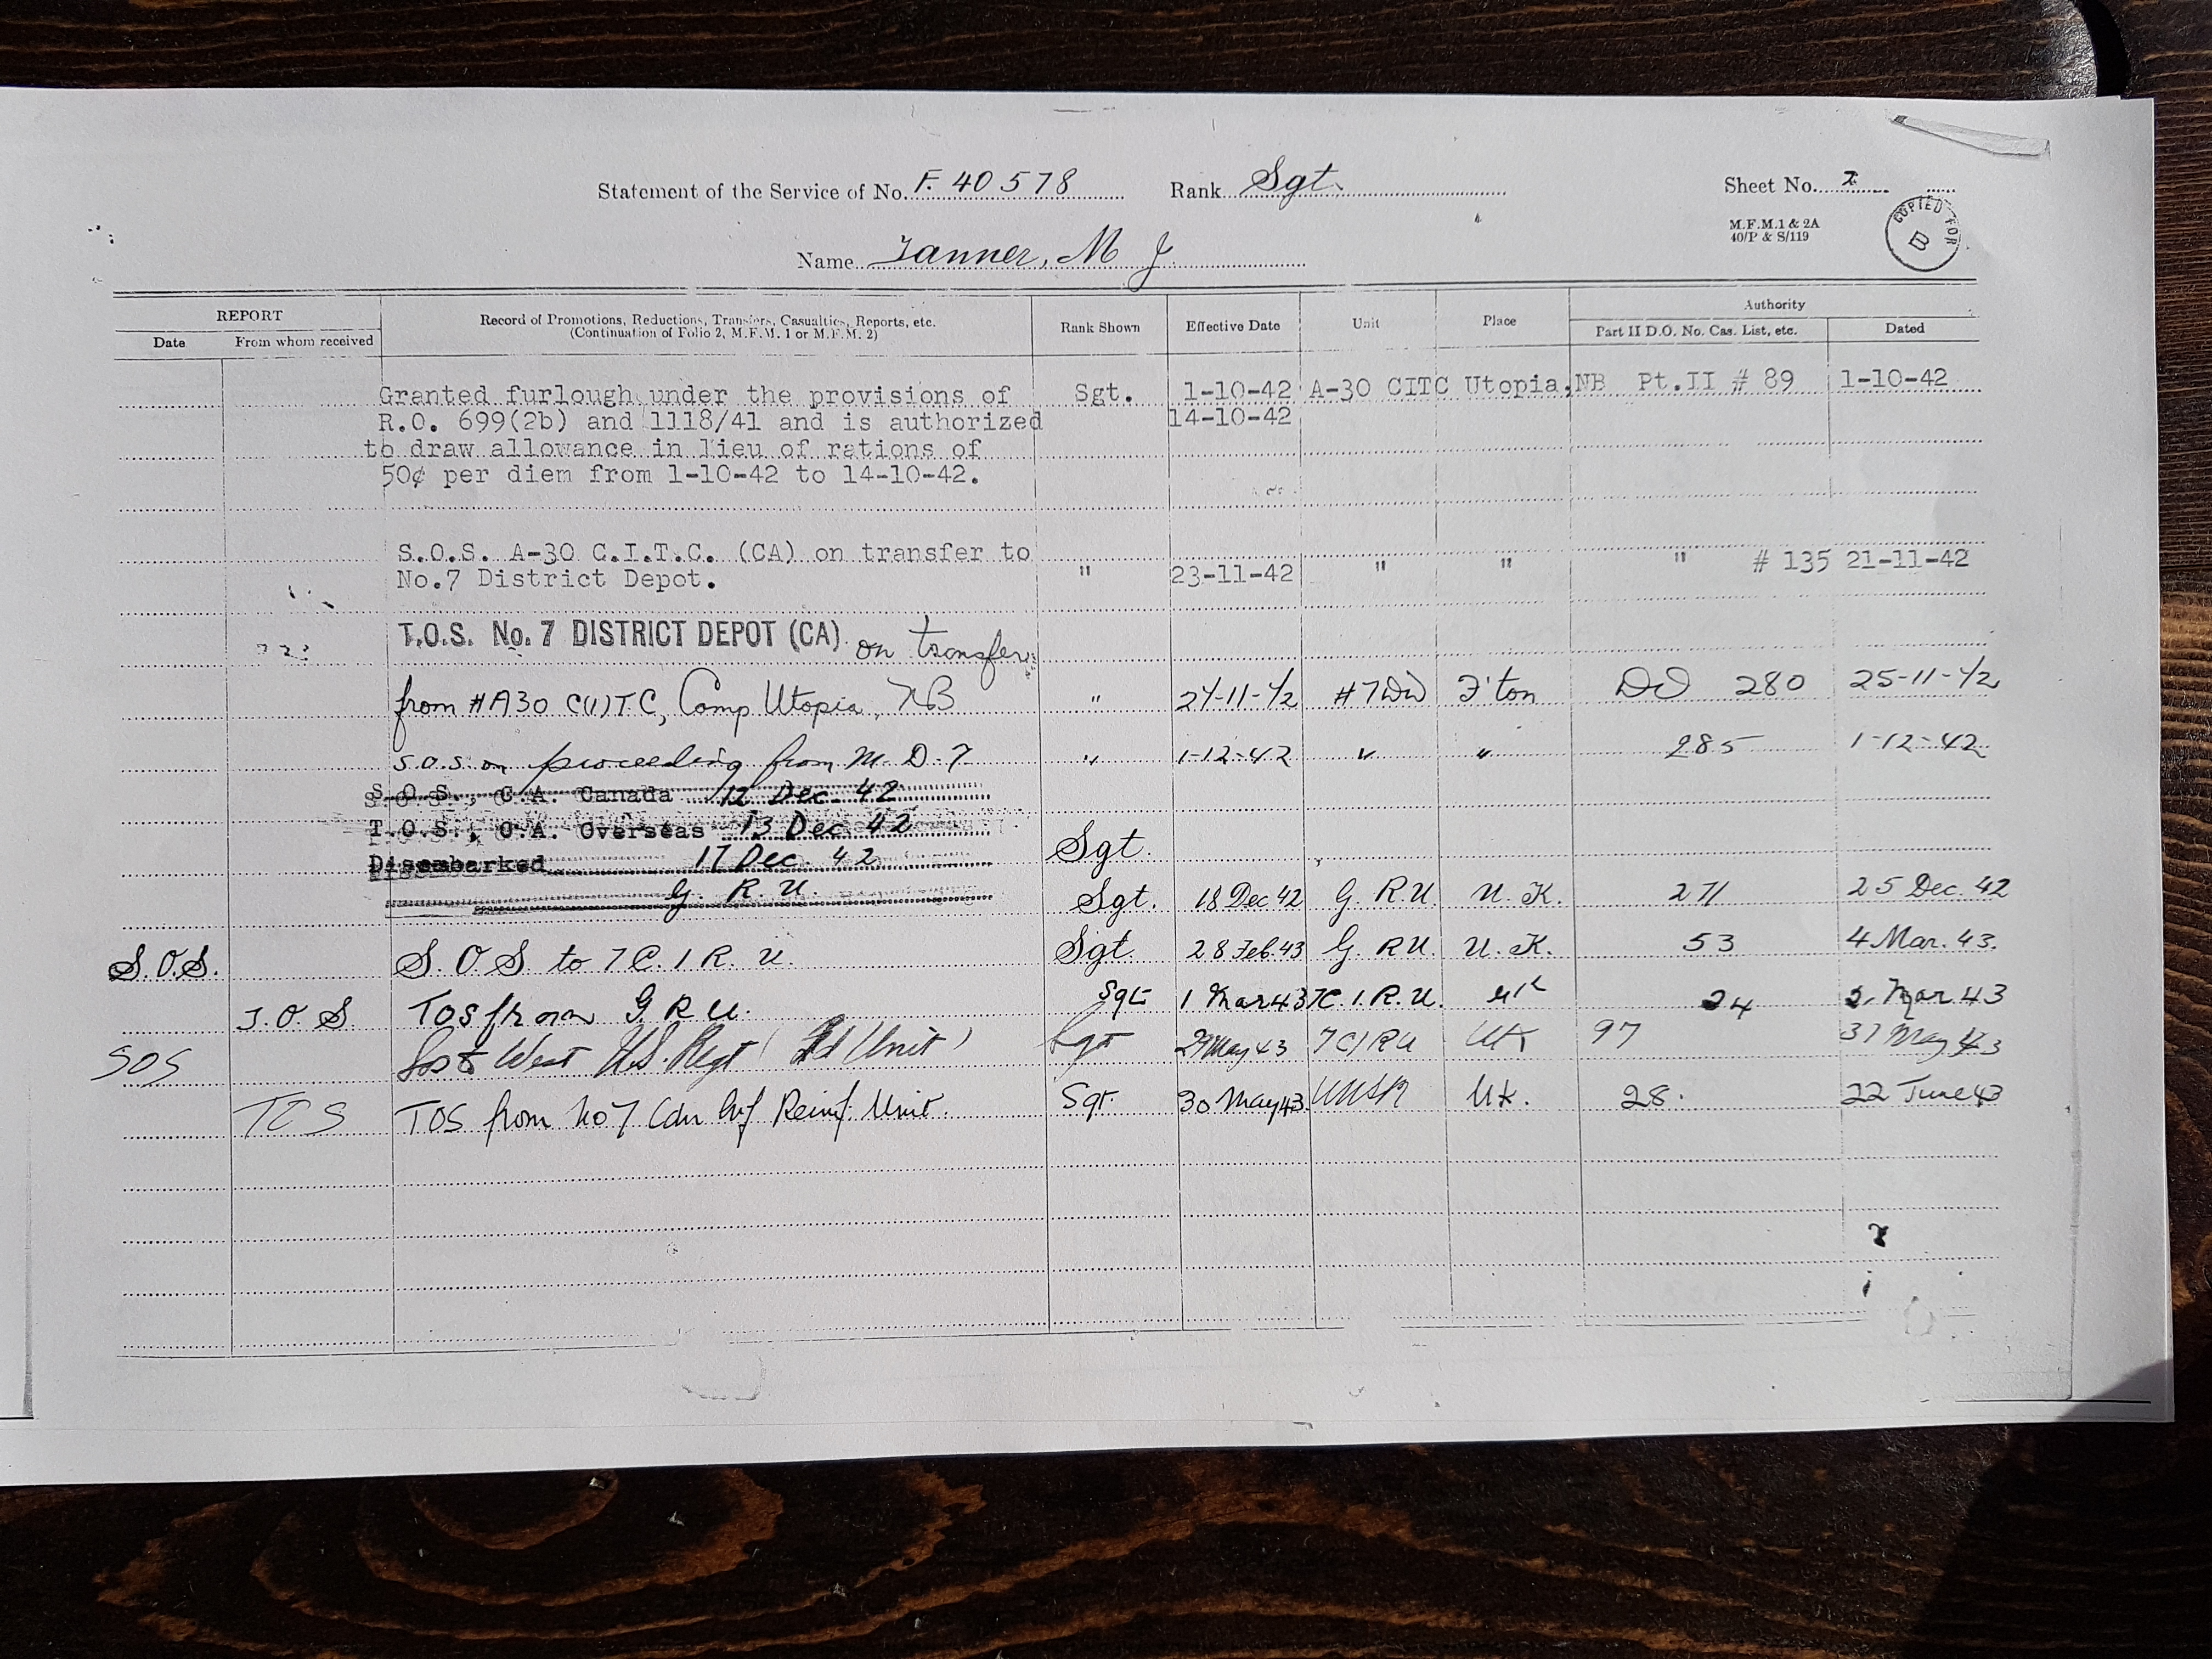 Statement of the Service of No. F. 40578 Rank Sgt. Sheet No. 2
M.F.M. 1 & 2A
40/P & S/119
COPIED FOR
B
Name Tanner, M J
REPORT
Record of Promotions, Reductions, Transfers, Casualties, Reports, etc.
(Continuation of Folio 2, M.F.M. 1 or M.F.M. 2)
Rank Shown Effective Date Unit Place Authority
Date From whom received Part II D.O. No. Cas. List, etc. Dated
Granted furlough under the provisions of Sgt. 1-10-42 A-30 CITC Utopia,NB Pt.II # 89 1-10-42
R.O. 699(2b) and 1118/41 and is authorized 14-10-42
to draw allowance in lieu of rations of
50¢ per diem from 1-10-42 to 14-10-42.
S.O.S. A-30 C.I.T.C. (CA) on transfer to
No.7 District Depot. " 23-11-42 " " " # 135 21-11-42
T.O.S. No. 7 DISTRICT DEPOT (CA) on transfer
from #A30 C(I)TC, Camp Utopia, NB " 24-11-42 #7DD F'ton DO 280 25-11-42
S.O.S. on proceeding from M. D. 7 " 1-12-42 " " 285 1-12-42
S.O.S., C.A. Canada 12 Dec 42
T.O.S., C.A. Overseas 13 Dec 42
Disembarked 17 Dec 42 Sgt.
G. R. U. Sgt. 18 Dec 42 G. R. U U. K. 271 25 Dec. 42
S.O.S. S. O S to 7 C. I R. U. Sgt. 28 Feb. 43 G. R U U. K. 53 4 Mar. 43.
T. O. S. TOS from G R U. Sgt 1 Mar 43 7C. I. R. U. UK 24 Mar 43
SOS West N.S. Regt ( Fd Unit ) Sgt 29 May 43 7CIRU UK 97 31 May 43
TOS TOS from No 7 Cdn Inf Reinf. Unit. Sgt. 30 May 43 WNSR Uk. 28. 22 June 43